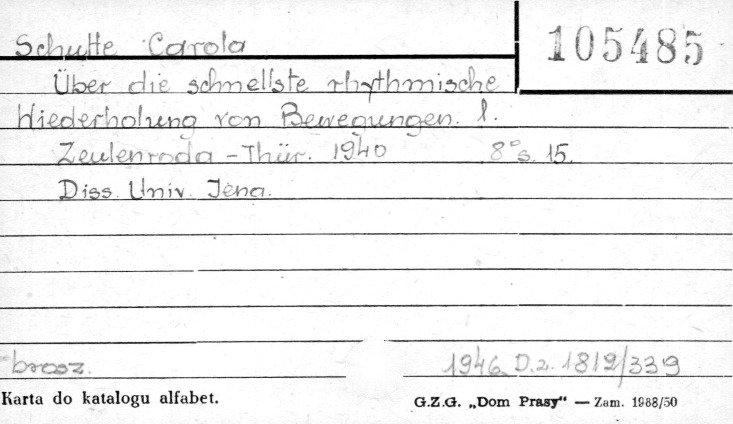 105485
Schutte Carola
Über die schnellste rhythmische
Wiederholung von Bewegungen. l.
Zeulenroda - Thür. 1940 8° s. 15.
Diss. Univ. Jena.
brosz. 1946 D.z. 1819/339
Karta do katalogu alfabet. G.Z.G. „Dom Prasy" — Zam. 1988/50